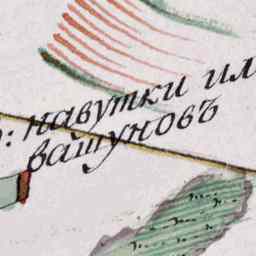 о: навутки ил
вашуновъ